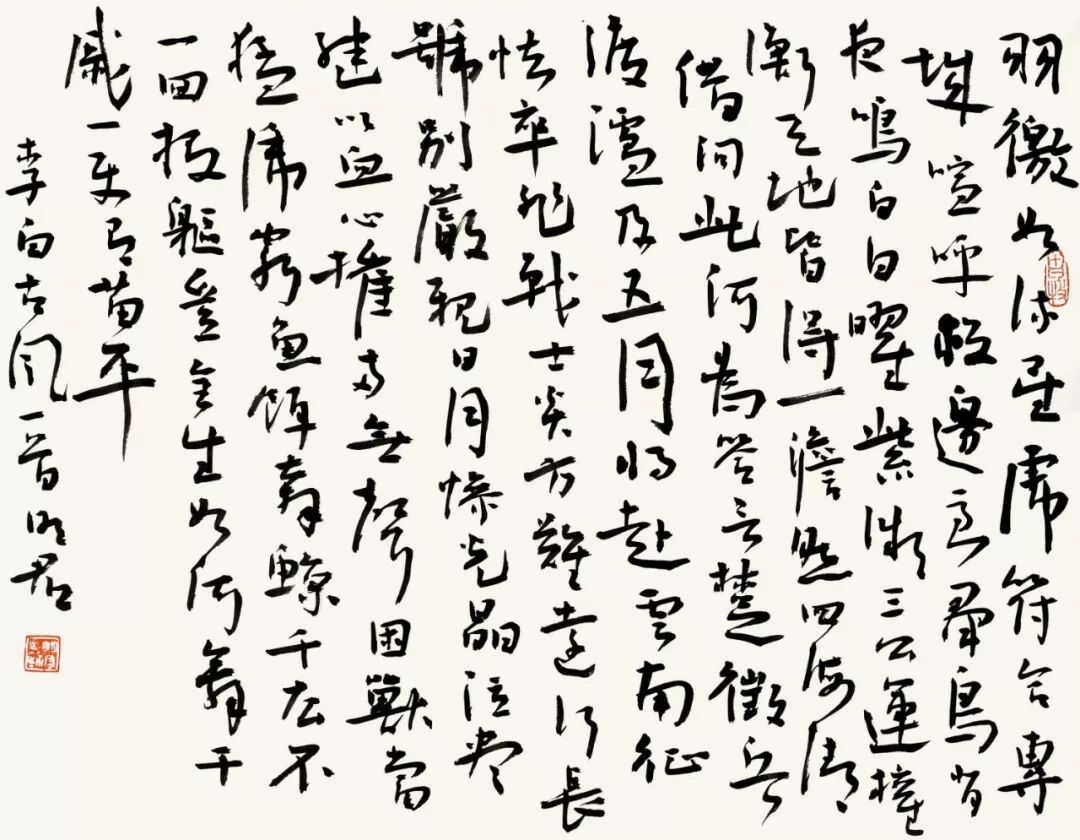 羽檄如流星虎符合專
城喧呼救邊急羣鳥皆
夜鳴白日曜紫微三公運權
衡天地皆得一澹然四海清
借問此何為答言楚徵兵
渡瀘及五月將赴雲南征
怯卒非戰士炎方難遠行長
號別嚴親日月慘光晶泣盡
繼以血心摧兩無聲困獸當
猛虎窮魚餌奔鯨千去不
一回投軀豈全生如何舞干
戚一使有苗平
李白古風一首明君